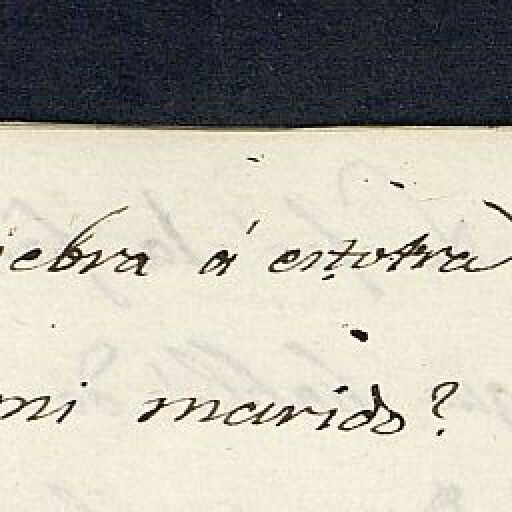 iebra á esotra
mi marido?